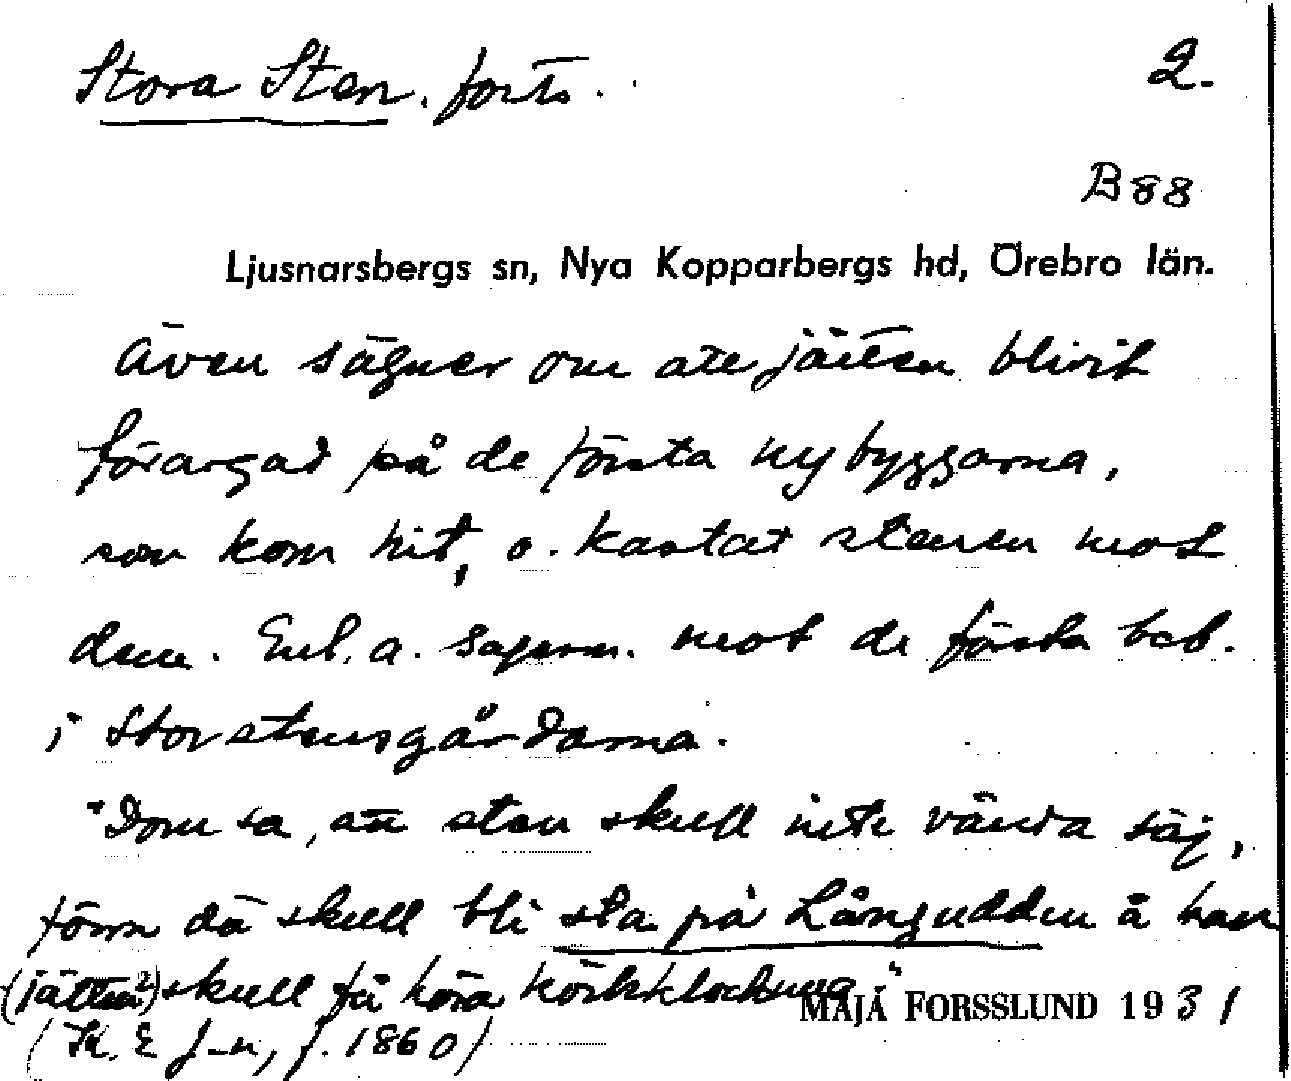 Stora Sten. forts. 2.
B88
Ljusnarsbergs sn, Nya Kopparbergs hd, Örebro län.
Även sägner om att jätten blivit
förargad på de första nybyggarna,
som kom hit, o. kastat stenen mot
dem. Enl. a. sagesm. mot de första beb.
i Storstensgårdarna.
"Dom sa, att sten skull inte vända säj,
förrn dä skull bli sta på Långudden å han
(jätten?) skull få höra körkklockuna."
MAJA FORSSLUND 1931
(K. E J-n, f. 1860)